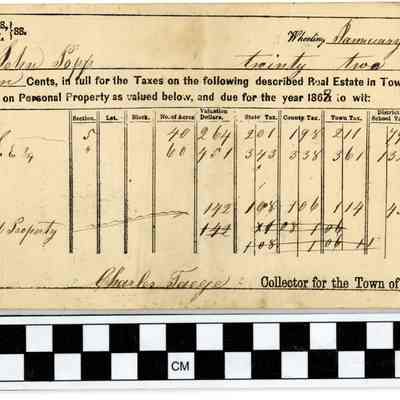 ss. Wheeling, January
John Popp twinty two
Cents, in full for the Taxes on the following described Real Estate in Tow
on Personal Property as valued below, and due for the year 1868 to wit:
Section. Lot. Block. No. of Acres Valuation Dollars. State Tax. County Tax. Town Tax. District School
5 40 264 201 198 211
" 60 451 343 338 361 13
142 108 106 114 4
Property 142 108 106
108 106 11
Charles Taege Collector for the Town of
CM